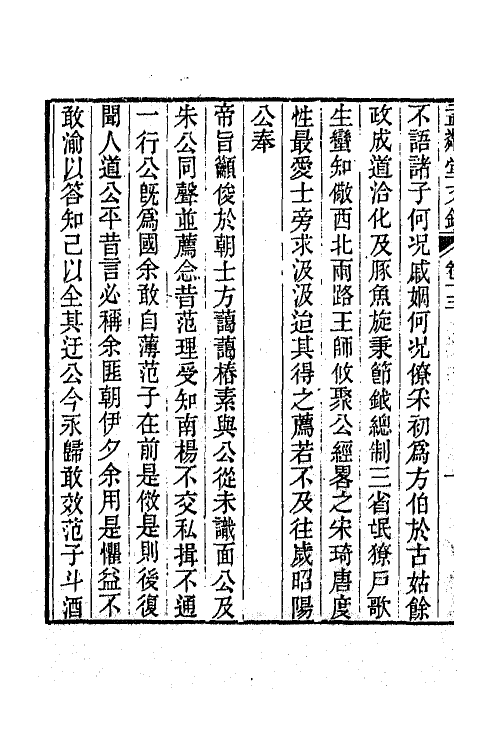 不語諸子何况戚姻何况僚寀初爲方伯於古姑餘
政成道洽化及豚魚旋秉節鉞總制三省氓獠戸歌
生蠻知儆西北兩路王師攸聚公經畧之宋琦唐度
性最愛士旁求汲汲迨其得之薦若不及往歲昭陽
公奉
帝旨籲俊於朝士方藹藹椿素與公從未識面公及
朱公同聲並薦念昔范理受知南楊不交私揖不通
一行公旣爲國余敢自薄范子在前是傚是則後復
聞人道公平昔言必稱余匪朝伊夕余用是懼益不
敢渝以答知己以全其迂公今永歸敢效范子斗酒
孟鄰堂文鈔 卷十三